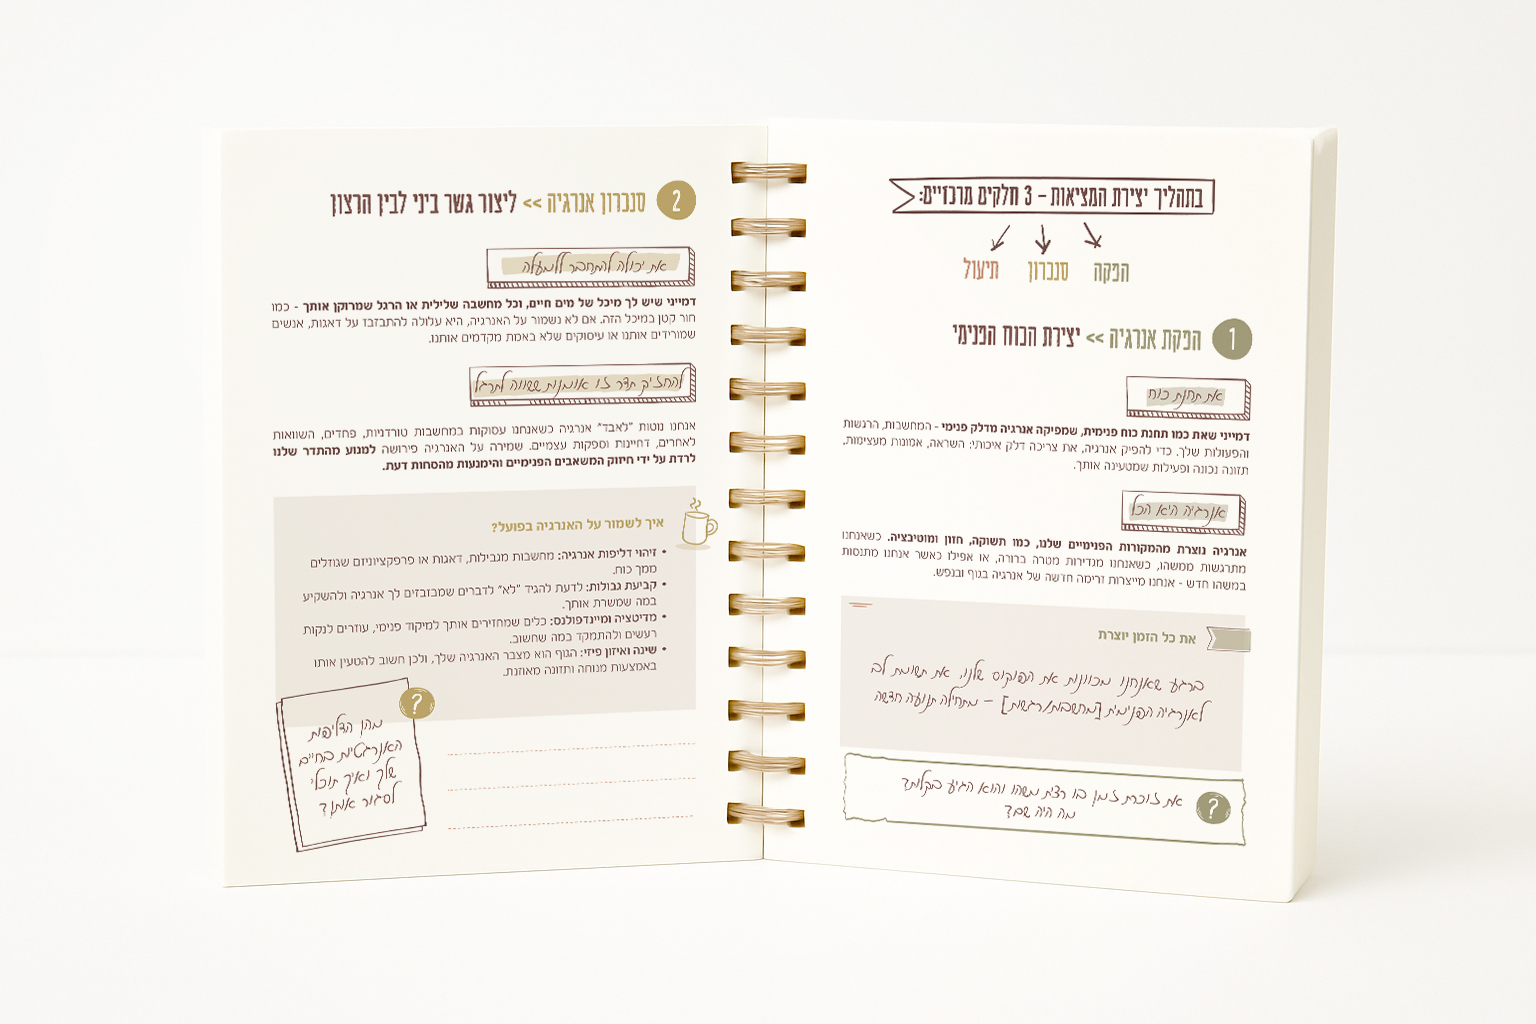 בתהליך יצירת המציאות – 3 חלקים מרכזיים:
הפקה
סנכרון
תיעול
1
הפקת אנרגיה >> יצירת הכוח הפנימי
את תחנת כוח
דמייני שאת כמו תחנת כוח פנימית, שמפיקה אנרגיה מדלק פנימי - המחשבות, הרגשות
והפעולות שלך. כדי להפיק אנרגיה, את צריכה דלק איכותי: השראה, אמונות מעצימות,
תזונה נכונה ופעילות שמטעינה אותך.
אנרגיה היא הכל
אנרגיה נוצרת מהמקורות הפנימיים שלנו, כמו תשוקה, חזון ומוטיבציה. כשאנחנו
מתרגשות ממשהו, כשאנחנו מגדירות מטרה ברורה, או אפילו כאשר אנחנו מתנסות
במשהו חדש - אנחנו מייצרות זרימה חדשה של אנרגיה בגוף ובנפש.
את כל הזמן יוצרת
ברגע שאנחנו מכוונות את הפוקוס שלנו, את תשומת לב
לאנרגיה הפנימית [מחשבות/רגשות] – מתחילה תנועה חדשה
?
את זוכרת זמן בו רצית משהו והוא הגיע בקלות?
מה היה שם?
2
סנכרון אנרגיה >> ליצור גשר ביני לבין הרצון
את יכולה להתחבר ללמעלה
דמייני שיש לך מיכל של מים חיים, וכל מחשבה שלילית או הרגל שמרוקן אותך - כמו
חור קטן במיכל הזה. אם לא נשמור על האנרגיה, היא עלולה להתבזבז על דאגות, אנשים
שמורידים אותנו או עיסוקים שלא באמת מקדמים אותנו.
להחזיק תדר זו אומנות ששווה לתרגל
אנחנו נוטות "לאבד" אנרגיה כשאנחנו עסוקות במחשבות טורדניות, פחדים, השוואות
לאחרים, דחיינות וספקות עצמיים. שמירה על האנרגיה פירושה למנוע מהתדר שלנו
לרדת על ידי חיזוק המשאבים הפנימיים והימנעות מהסחות דעת.
איך לשמור על האנרגיה בפועל?
• זיהוי דליפות אנרגיה: מחשבות מגבילות, דאגות או פרפקציוניזם שגוזלים
ממך כוח.
• קביעת גבולות: לדעת להגיד "לא" לדברים שמבזבזים לך אנרגיה ולהשקיע
במה שמשרת אותך.
• מדיטציה ומיינדפולנס: כלים שמחזירים אותך למיקוד פנימי, עוזרים לנקות
רעשים ולהתמקד במה שחשוב.
• שינה ואיזון פיזי: הגוף הוא מצבר האנרגיה שלך, ולכן חשוב להטעין אותו
באמצעות מנוחה ותזונה מאוזנת.
?
מהן הדליפות
האנרגטיות בחיים
שלך ואיך תוכלי
לסגור אותן?